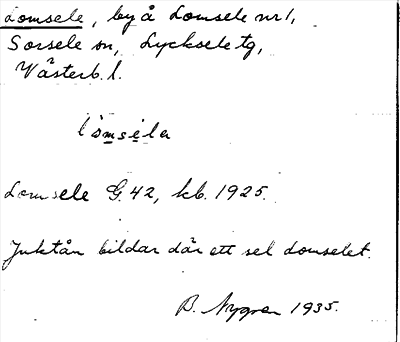 Lomsele, by å Lomsele nr 1,
Sorsele sn, Lycksele tg,
Västerb. l.
lòmséla
Lomsele G. 42, kb. 1925.
Juktån bildar där ett sel Lomselet.
B. Nygren 1935.